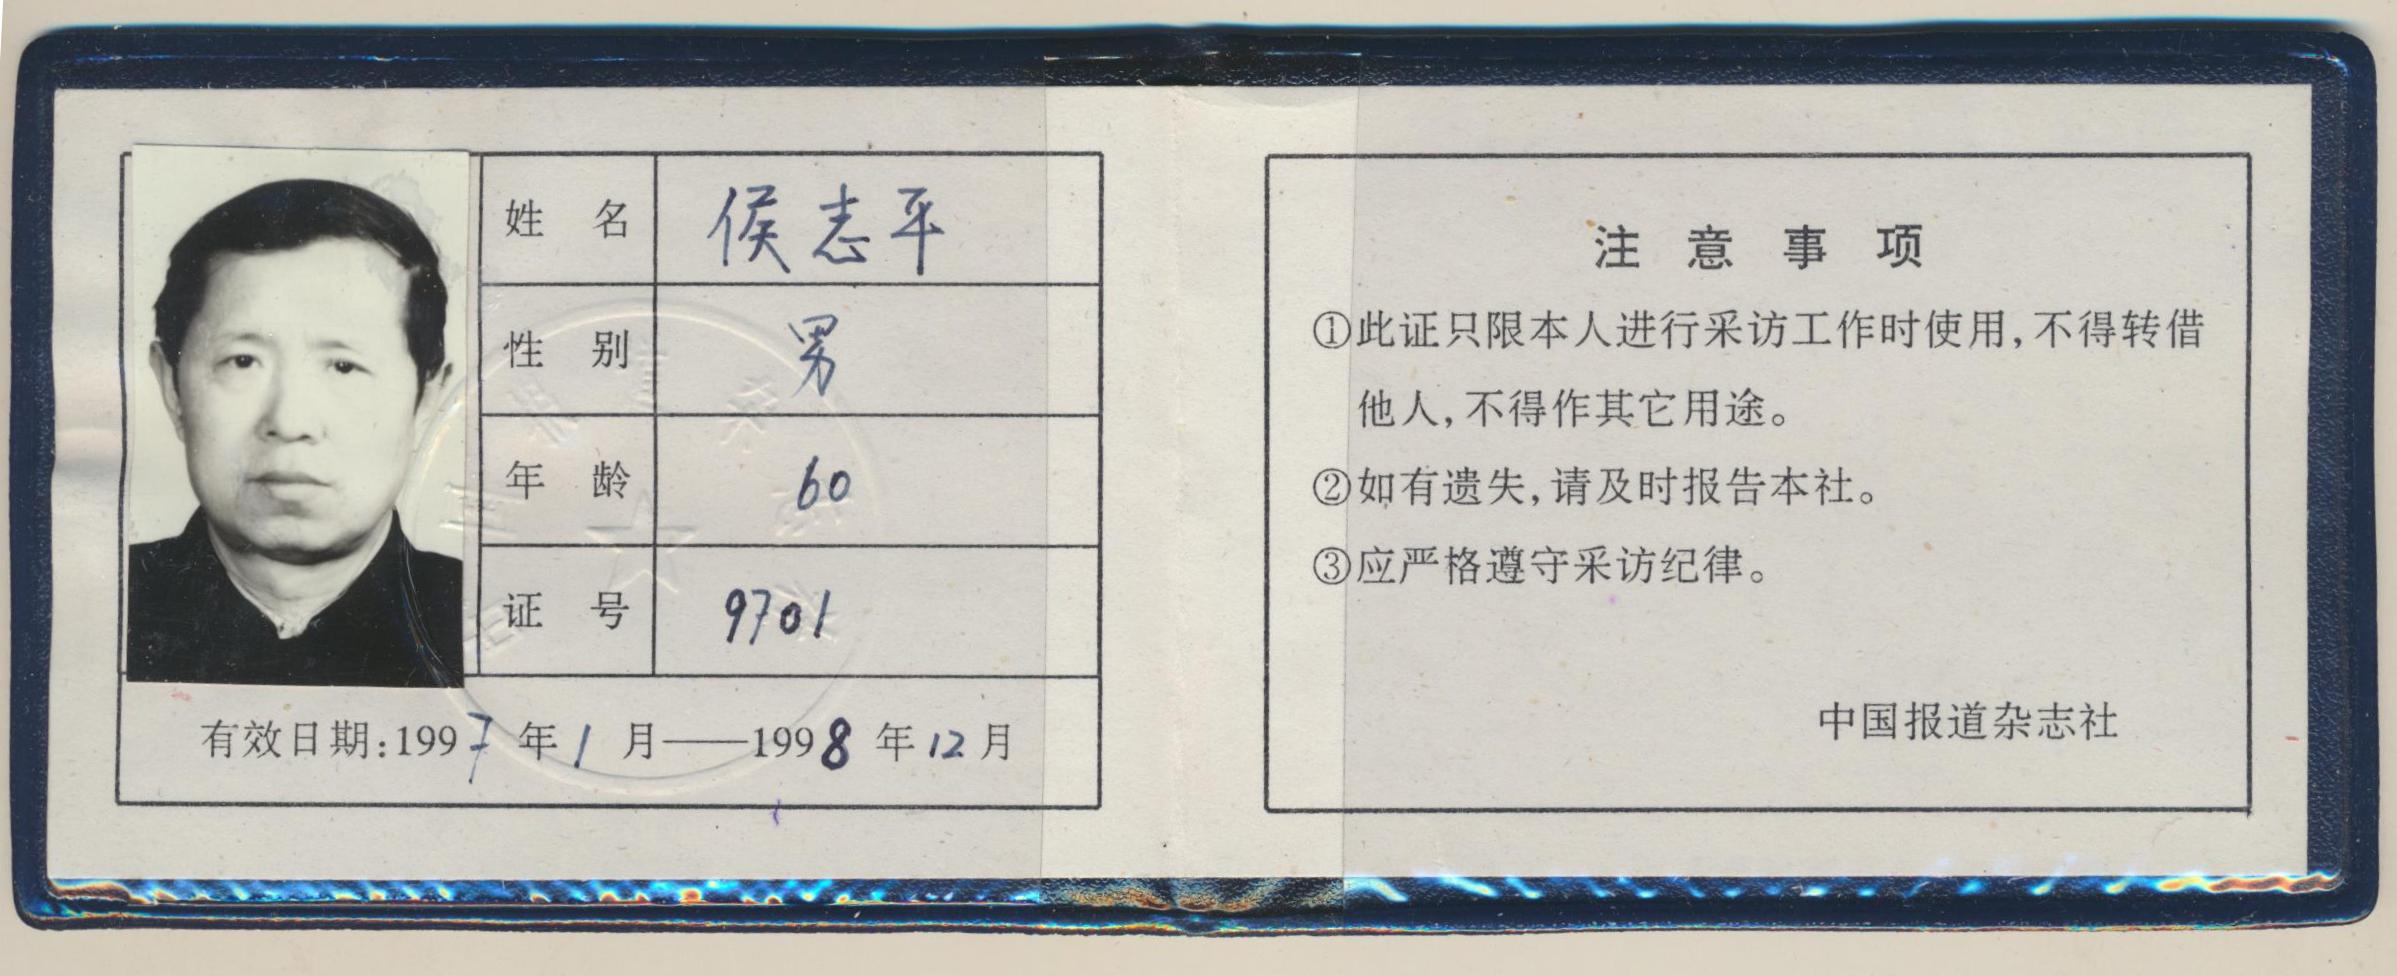 姓 名 侯志平
性 别 男
年 龄 60
证 号 9701
有效日期:1997年1月——1998年12月
注意事项
①此证只限本人进行采访工作时使用,不得转借
他人,不得作其它用途。
②如有遗失,请及时报告本社。
③应严格遵守采访纪律。
中国报道杂志社